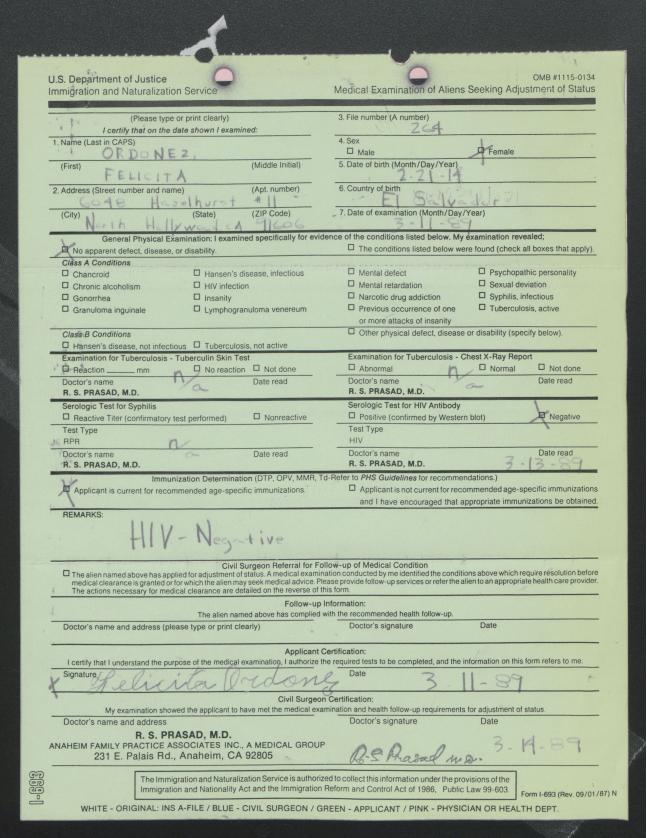 U.S. Department of Justice
Immigration and Naturalization Service
OMB #1115-0134
Medical Examination of Aliens Seeking Adjustment of Status
(Please type or print clearly)
I certify that on the date shown I examined:
3. File number (A number)
264
1. Name (Last in CAPS)
ORDONEZ,
4. Sex
Male
Female
(First)
(Middle Initial)
FELICITA
5. Date of birth (Month/Day/Year)
2-21-14
2. Address (Street number and name)
(Apt. number)
6048 Hazelhurst #11
6. Country of birth
El Salvador
(City)
(State)
(ZIP Code)
North Hollywood CA 91606
7. Date of examination (Month/Day/Year)
3-11-89
General Physical Examination: I examined specifically for evidence of the conditions listed below. My examination revealed;
No apparent defect, disease, or disability.
The conditions listed below were found (check all boxes that apply).
Class A Conditions
Chancroid
Hansen's disease, infectious
Mental defect
Psychopathic personality
Chronic alcoholism
HIV infection
Mental retardation
Sexual deviation
Gonorrhea
Insanity
Narcotic drug addiction
Syphilis, infectious
Granuloma inguinale
Lymphogranuloma venereum
Previous occurrence of one
or more attacks of insanity
Tuberculosis, active
Class B Conditions
Other physical defect, disease or disability (specify below).
Hansen's disease, not infectious
Tuberculosis, not active
Examination for Tuberculosis - Tuberculin Skin Test
Reaction ______ mm
No reaction
Not done
Doctor's name
n/a
Date read
R. S. PRASAD, M.D.
Examination for Tuberculosis - Chest X-Ray Report
Abnormal
Normal
Not done
Doctor's name
n/a
Date read
R. S. PRASAD, M.D.
Serologic Test for Syphilis
Reactive Titer (confirmatory test performed)
Nonreactive
Test Type
RPR
n/a
Doctor's name
Date read
R. S. PRASAD, M.D.
Serologic Test for HIV Antibody
Positive (confirmed by Western blot)
Negative
Test Type
HIV
Doctor's name
Date read
R. S. PRASAD, M.D.
3-13-89
Immunization Determination (DTP, OPV, MMR, Td-Refer to PHS Guidelines for recommendations.)
Applicant is current for recommended age-specific immunizations.
Applicant is not current for recommended age-specific immunizations
and I have encouraged that appropriate immunizations be obtained.
REMARKS:
HIV - Negative
Civil Surgeon Referral for Follow-up of Medical Condition
The alien named above has applied for adjustment of status. A medical examination conducted by me identified the conditions above which require resolution before
medical clearance is granted or for which the alien may seek medical advice. Please provide follow-up services or refer the alien to an appropriate health care provider.
The actions necessary for medical clearance are detailed on the reverse of this form.
Follow-up Information:
The alien named above has complied with the recommended health follow-up.
Doctor's name and address (please type or print clearly)
Doctor's signature
Date
Applicant Certification:
I certify that I understand the purpose of the medical examination, I authorize the required tests to be completed, and the information on this form refers to me.
Signature
Date
x Felicita Ordonez
3-11-89
Civil Surgeon Certification:
My examination showed the applicant to have met the medical examination and health follow-up requirements for adjustment of status.
Doctor's name and address
Doctor's signature
Date
R. S. PRASAD, M.D.
ANAHEIM FAMILY PRACTICE ASSOCIATES INC., A MEDICAL GROUP
231 E. Palais Rd., Anaheim, CA 92805
R.S. Prasad M.D.
3-14-89
I-693
The Immigration and Naturalization Service is authorized to collect this information under the provisions of the
Immigration and Nationality Act and the Immigration Reform and Control Act of 1986, Public Law 99-603.
Form I-693 (Rev. 09/01/87) N
WHITE - ORIGINAL: INS A-FILE / BLUE - CIVIL SURGEON / GREEN - APPLICANT / PINK - PHYSICIAN OR HEALTH DEPT.